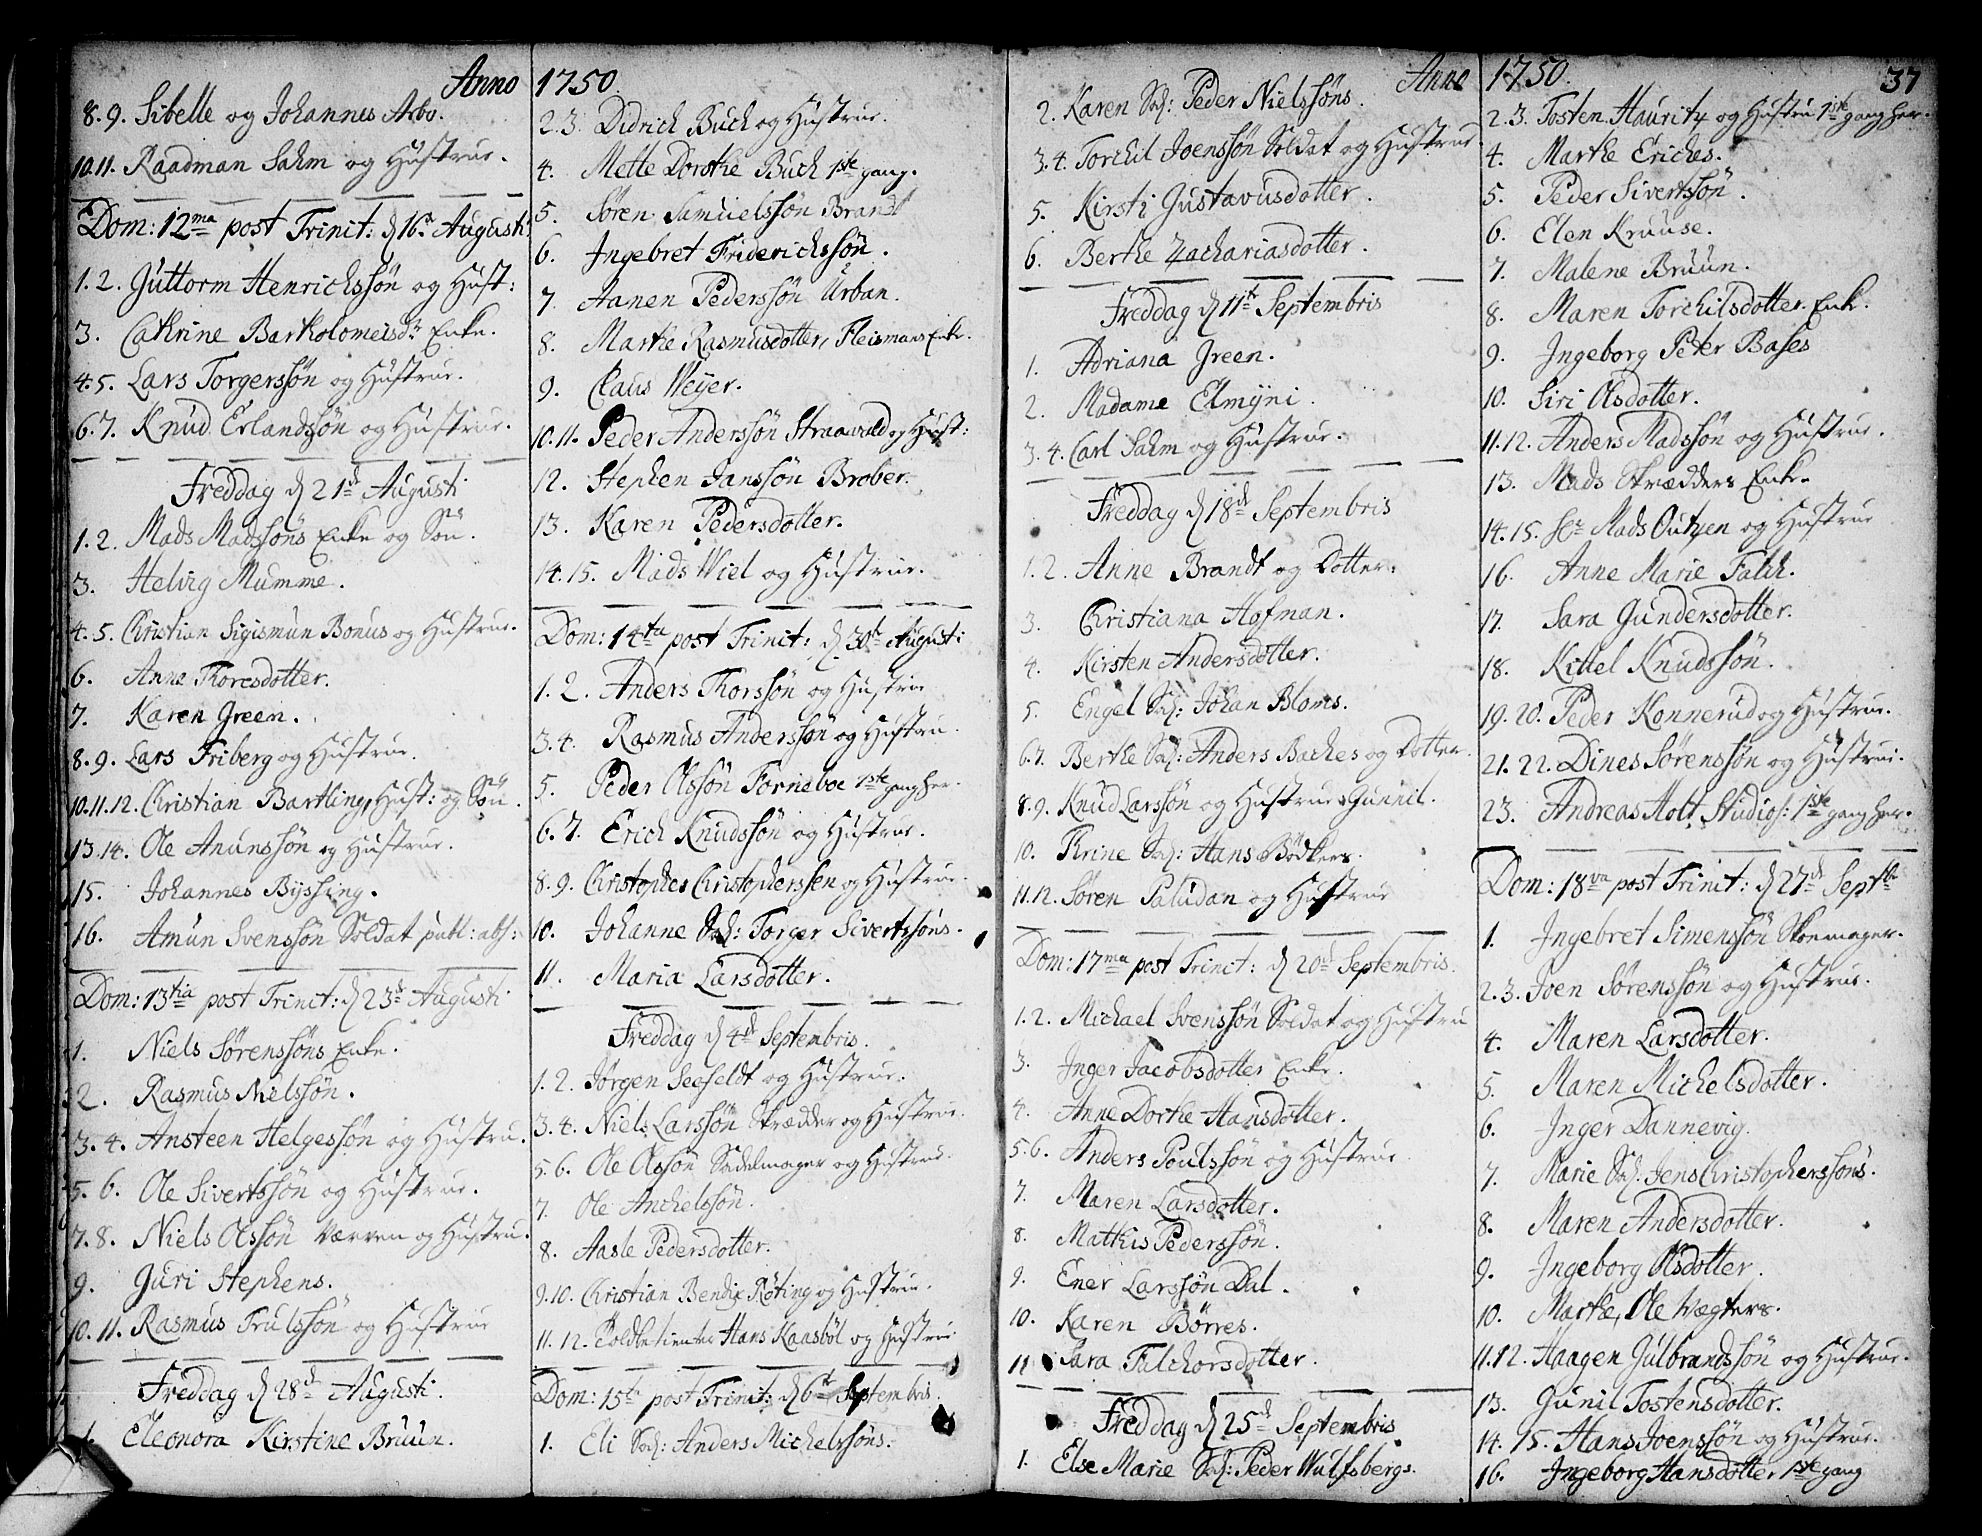 Anno 1750.
8. 9. Sibelle og Johannes Arbo.
10. 11. Raadman Sahm og Hustrue.
Dom: 12ma post Trinit: d 16. Augusti
1. 2. Guttorm Henrichssön og Hust:
3. Cathrine Bartholomeisdr Enke.
4. 5. Lars Torgerssön og Hustrue.
6. 7. Knud Erlandssön og Hustrue.
Freddag d 21d Augusti
1. 2. Mads Madssöns Enke og Sön.
3. Helvig Mumme.
4. 5. Christian Sigismun Bonus og Hustrue.
6. Anne Thoresdotter.
7. Karen Green.
8. 9. Lars Friberg og Hustrue
10. 11. 12. Christian Bartling, Hust: og Sön.
13. 14. Ole Anunssön og Hustrue.
15. Johannes Byssing.
16. Amun Svenssön Soldat publ: abs:
Dom: 13tia post Trinit: d 23d Augusti
1. Niels Sörenssöns Enke.
2. Rasmus Nielssön.
3. 4. Ansteen Helgessön og Hustru.
5. 6. Ole Sivertssön og Hustrue.
7. 8. Niels Olssön Værven og Hustru.
9. Guri Stephens.
10. 11. Rasmus Trulssön og Hustrue
Freddag d 28d Augusti.
1. Eleonora Kirstine Bruun.
2. 3. Didrich Buch og Hustrue.
4. Mette Dorthe Buch 1ste gang.
5. Sören Samuelssön Brandt
6. Ingebret Friderichssön.
7. Aanen Pederssön Urban.
8. Marthe Rasmusdotter, Fleismans Enke.
9. Claus Weyer.
10. 11. Peder Anderssön Straavald og Hust:
12. Stephen Janssön Brober.
13. Karen Pedersdotter.
14. 15. Mads Wiel og Hustrue.
Dom: 14ta post Trinit: d 30t Augusti
1. 2. Anders Thorssön og Hustrue
3. 4. Rasmus Anderssön og Hustru.
5. Peder Olssön Forneboe 1ste gang her.
6. 7. Erich Knudssön og Hustrue.
8. 9. Christopher Christopherssen og Hustrue.
10. Johanne Sal: Torger Sivertssöns.
11. Maria Larsdotter.
Freddag d 4d Septembris.
1. 2. Jörgen Seefeldt og Hustrue.
3. 4. Niels Larssön Skrædder og Hustrue.
5. 6. Ole Olssön Sadelmager og Hustrue.
7. Ole Anchelssön.
8. Aasle Pedersdotter.
9. 10. Christian Bendix Röting og Hustrue.
11. 12. Toldbetienter Hans Kaasböl og Hustrue
Dom: 15ta post Trinit: d 6t Septembris.
1. Eli Sal: Anders Michelssöns.
Anno 1750. 37
2. Karen Sal: Peder Nielssöns.
3. 4. Torchil Joenssön Soldat og Hustrue
5. Kirsti Gustavusdotter.
6. Berthe Zachariasdotter.
Freddag d 11te Septembris
1. Adriana Green.
2. Madame Elmyni.
3. 4. Carl Sahm og Hustrue.
Freddag d 18d Septembris
1. 2. Anne Brandt og Dotter.
3. Christiana Hofman.
4. Kirsten Andersdotter.
5. Engel Sal: Johan Bloms.
6. 7. Berthe Sal: Anders Baches og Dotter.
8. 9. Knud Larssön og Hustrue Gunnil.
10. Thrine Sal: Hans Bödkers.
11. 12. Sören Paludan og Hustrue
Dom: 17ma post Trinit: d 20d Septembris.
1. 2. Michael Svenssön Soldat og Hustru
3. Inger Jacobsdotter Enke.
4. Anne Dorthe Hansdotter.
5. 6. Anders Poulssön og Hustrue.
7. Maren Larsdotter.
8. Mathis Pederssön.
9. Ener Larssön Dal.
10. Karen Börres.
11. Sara Falchorsdotter.
Freddag d 25d Septembris
1. Else Marie Sal: Peder Wulfsbergs.
2. 3. Tosten Hauritz og Hustru 1ste gang her.
4. Marthe Eriches.
5. Peder Sivertssön.
6. Elen Kruuse.
7. Malene Bruun.
8. Maren Torchilsdotter Enke.
9. Ingeborg Peter Bases
10. Siri Olsdotter.
11. 12. Anders Madssön og Hustrue.
13. Mads Skrædders Enke.
14. 15. Sr Mads Outzen og Hustrue
16. Anne Marie Falch.
17. Sara Gundersdotter.
18. Kittel Knudssön.
19. 20. Peder Konnerud og Hustrue.
21. 22. Dines Sörenssön og Hustrue.
23. Andreas Holt Studios: 1ste gang her.
Dom: 18va post Trinit: d 27d Septbr
1. Ingebret Simenssön Skoemager.
2. 3. Joen Sörenssön og Hustrue.
4. Maren Larsdotter.
5. Maren Michelsdotter.
6. Inger Dannevig.
7. Marie Sal: Jens Christopherssöns.
8. Maren Andersdotter.
9. Ingeborg Olsdotter.
10. Marthe, Ole Vægters.
11. 12. Haagen Gulbrandssön og Hustrue.
13. Gunil Tostensdotter.
14. 15. Hans Joenssön og Hustrue.
16. Ingeborg Hansdotter 1ste gang